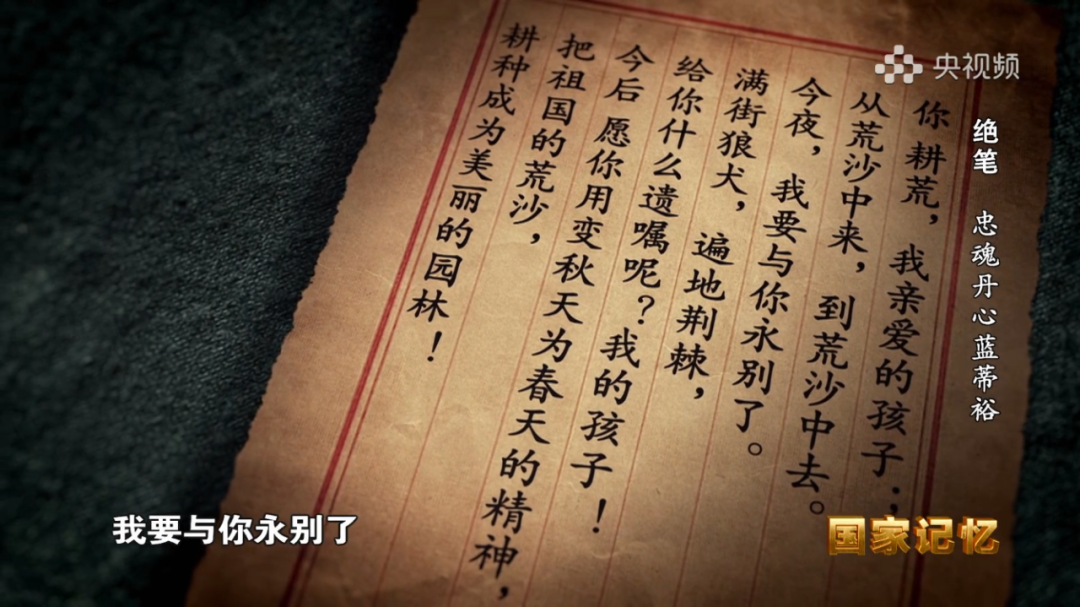 央视频
绝笔 忠魂丹心蓝蒂裕
你耕荒，我亲爱的孩子；
从荒沙中来，到荒沙中去。
今夜，我要与你永别了。
满街狼犬，遍地荆棘，
给你什么遗嘱呢？我的孩子！
今后 愿你用变秋天为春天的精神，
把祖国的荒沙，
耕种成为美丽的园林！
我要与你永别了
国家记忆